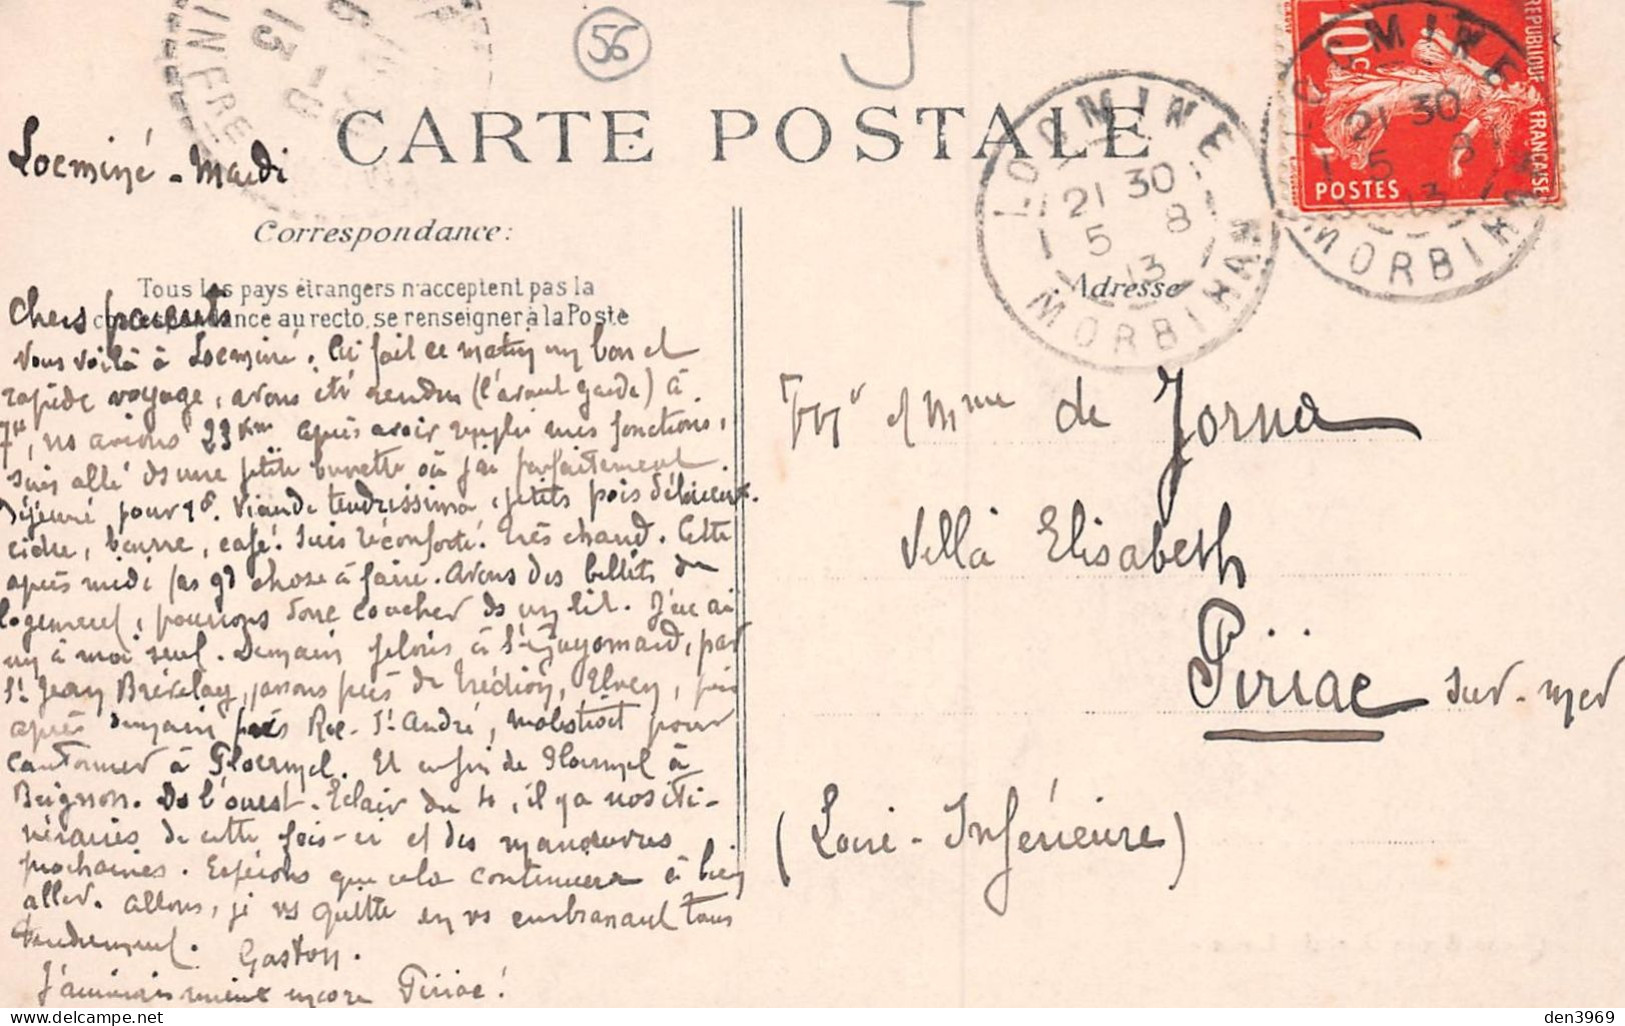 56
J
CARTE POSTALE
Locminé - Mardi
Correspondance:
Tous les pays étrangers n'acceptent pas la
correspondance au recto, se renseigner à la Poste
Chers parents
Vous voilà à Locminé. Ici fait ce matin un bon et
rapide voyage, avons été rendus (l'avant garde) à
7H, ns avions 23 Km après avoir rempli mes fonctions,
suis allé ds une petite buvette où j'ai parfaitement
Déjeuné pour 1f. Viande tendrissima, petits pois délicieux.
cidre, beurre, café. Suis réconforté. Très chaud. Cette
après midi pas gd chose à faire. Avons des billets de
logement, pourrons donc coucher ds un lit. J'en ai
un à moi seul. Demain filons à St-Guyomard, par
St Jean Brévelay, passons près de Trédion, Elven, puis
après demain près Roc-St André, Malestroit pour
cantonner à Ploermel. Et enfin de Ploermel à
Beignon. Ds l'ouest-Eclair du 4, il y a nos iti-
néraires de cette fois-ci et des manoeuvres
prochaines. Espérons que cela continuera à bien
aller. Allons, je vs quitte en vs embrassant tous
tendrement. Gaston.
J'aimerais mieux encore Piriac!
LOCMINE
21 30
5 8
13
MORBIHAN
LOCMINE
21 30
5 8
13
MORBIHAN
REPUBLIQUE FRANÇAISE
10c
POSTES
INFRE
13
Adresse
Mr et Mme de Jorna
Villa Elisabeth
Piriac sur-mer
(Loire-Inférieure)
delcampe.net
den3969